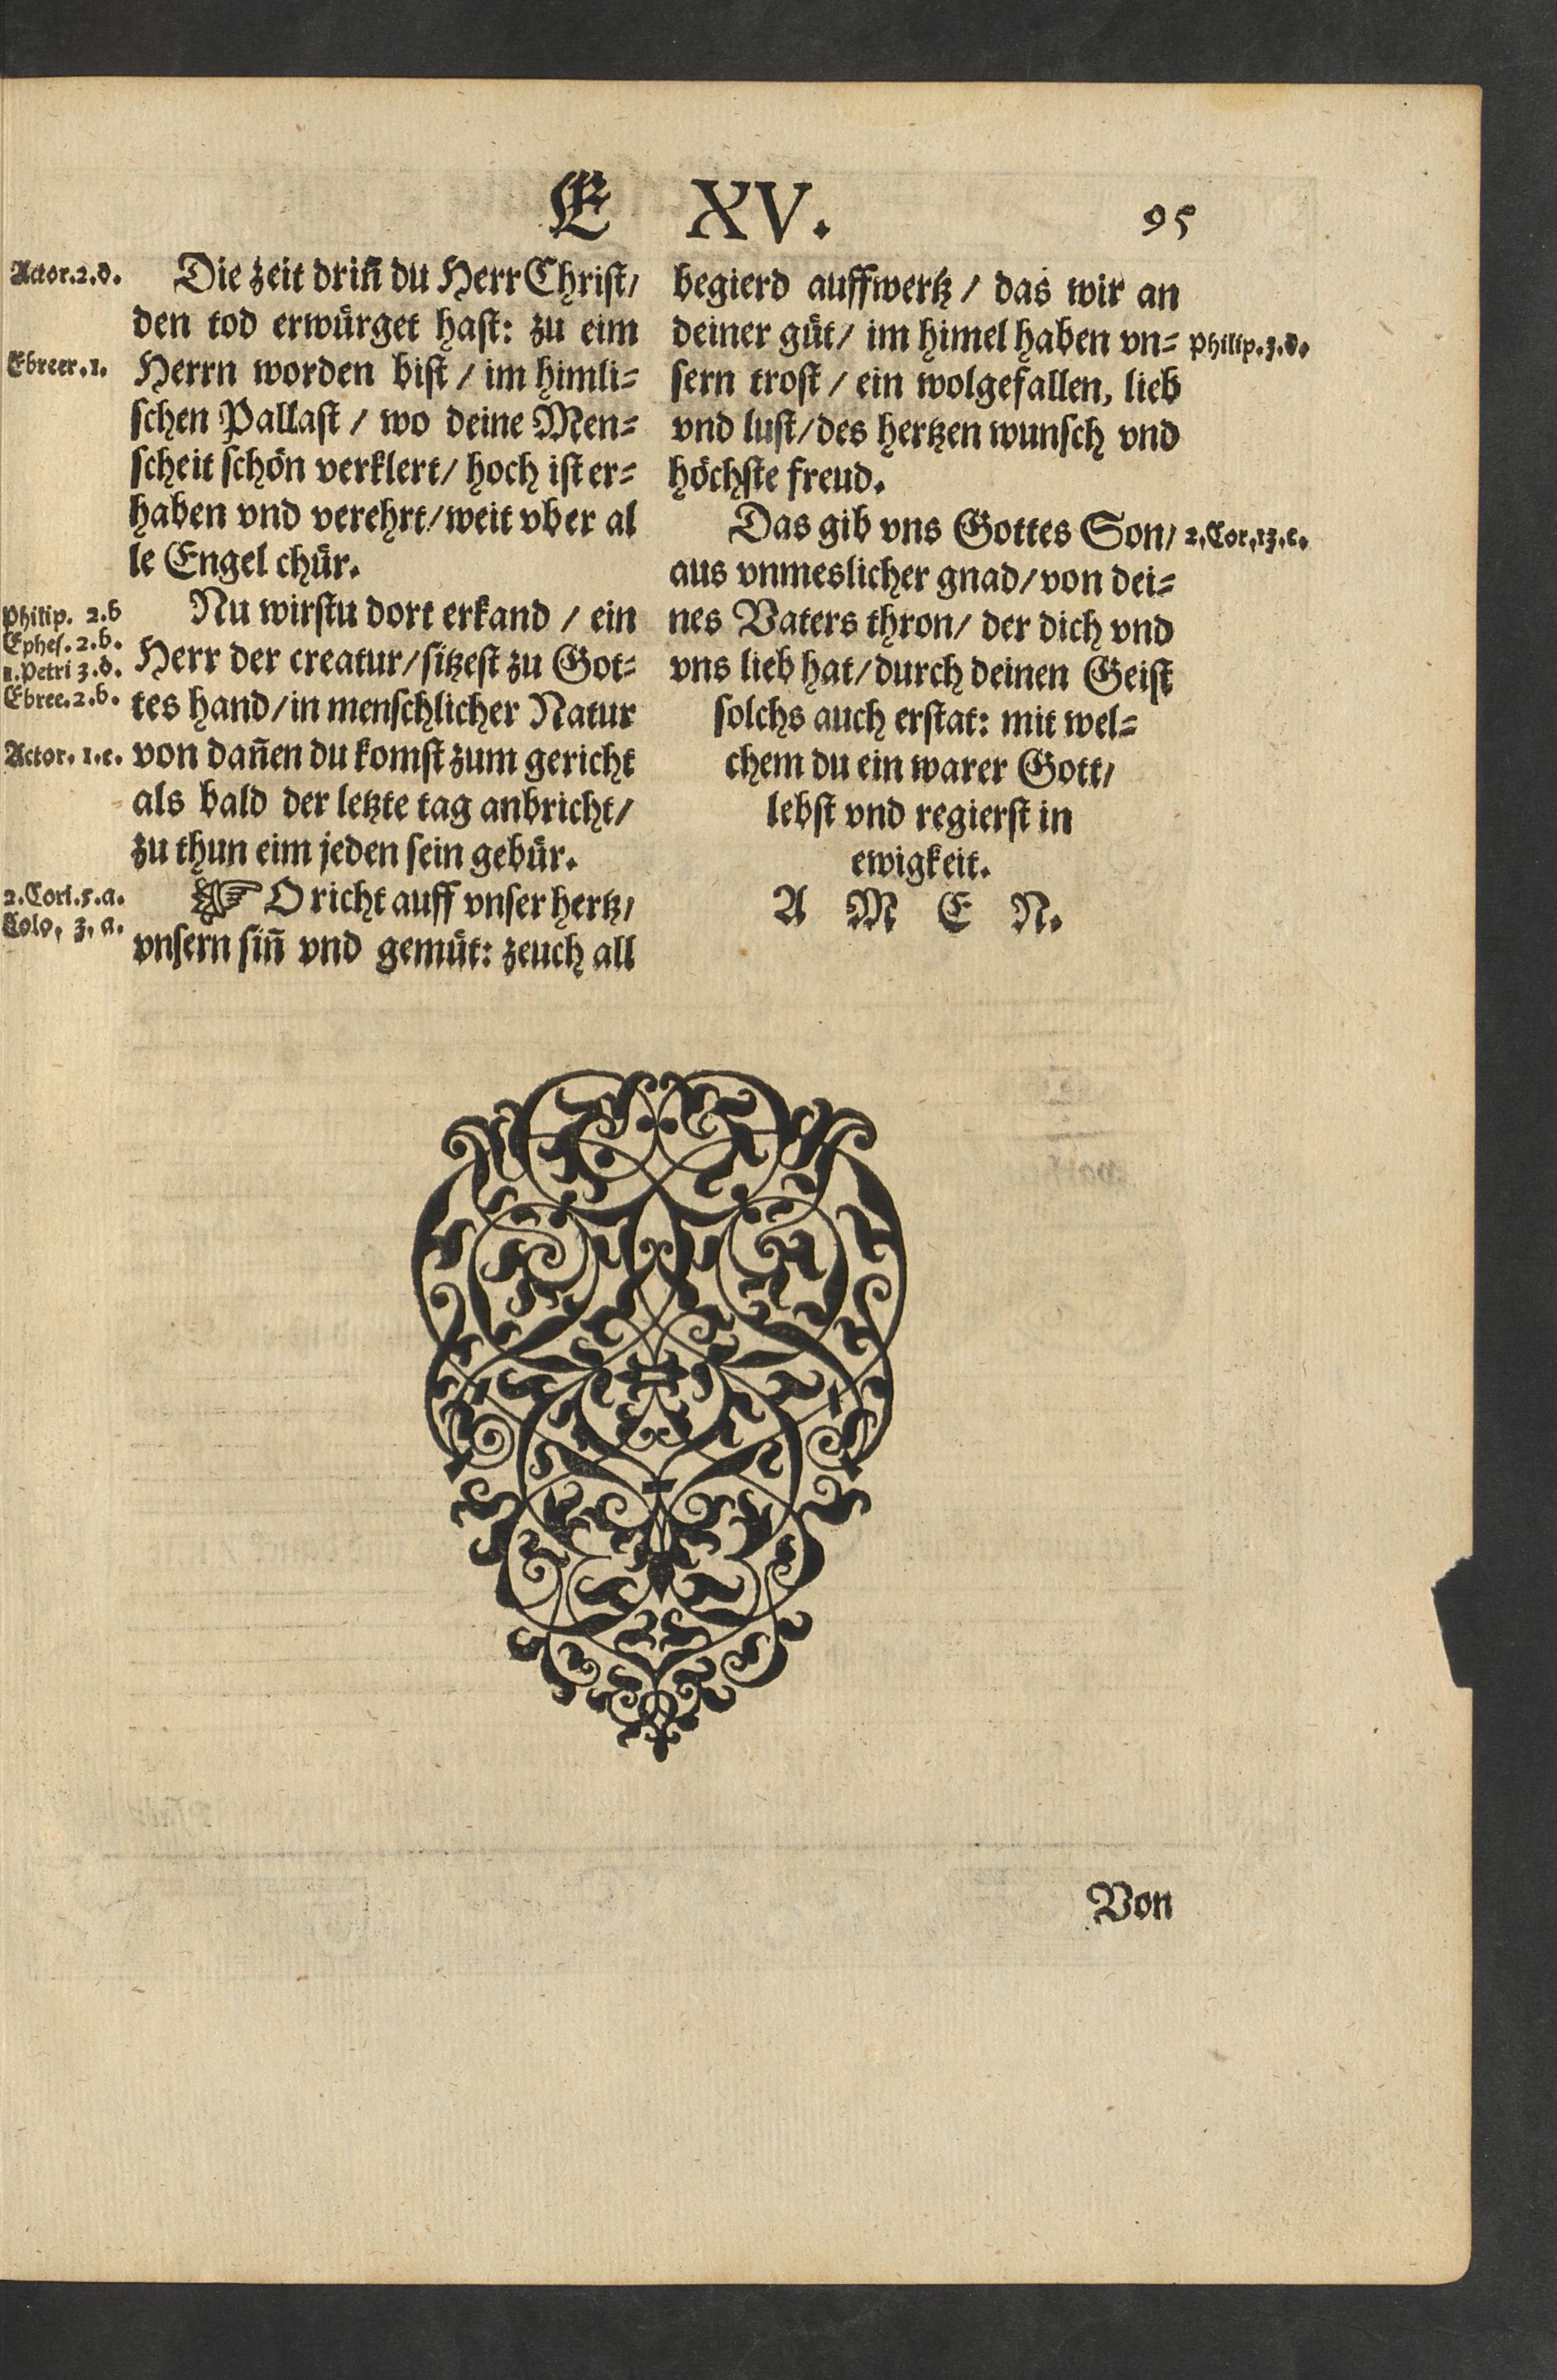 E XV. 95
Actor.2.d.
Die zeit driñ du Herr Christ/
den tod erwürget hast: zu eim
Ebreer.1.
Herrn worden bist / im himli=
schen Pallast / wo deine Men=
scheit schön verklert/ hoch ist er=
haben vnd verehrt/weit vber al
le Engel chür.
Philip. 2.b
Ephes. 2.b.
1.Petri 3.d.
Ebree.2.b.
Nu wirstu dort erkand / ein
Herr der creatur/sitzest zu Got=
tes hand/in menschlicher Natur
Actor. 1.c.
von dañen du komst zum gericht
als bald der letzte tag anbricht/
zu thun eim jeden sein gebür.
2.Cori.5.a.
Colo, 3, a.
☞ O richt auff vnser hertz/
vnsern siñ vnd gemüt: zeuch all
begierd auffwertz / das wir an
deiner güt/ im himel haben vn=
Philip.3.d.
sern trost / ein wolgefallen, lieb
vnd lust/des hertzen wunsch vnd
höchste freud.
Das gib vns Gottes Son/
2.Cor,13.c.
aus vnmeslicher gnad/von dei=
nes Vaters thron/ der dich vnd
vns lieb hat/durch deinen Geist
solchs auch erstat: mit wel=
chem du ein warer Gott/
lebst vnd regierst in
ewigkeit.
A M E N.
Von